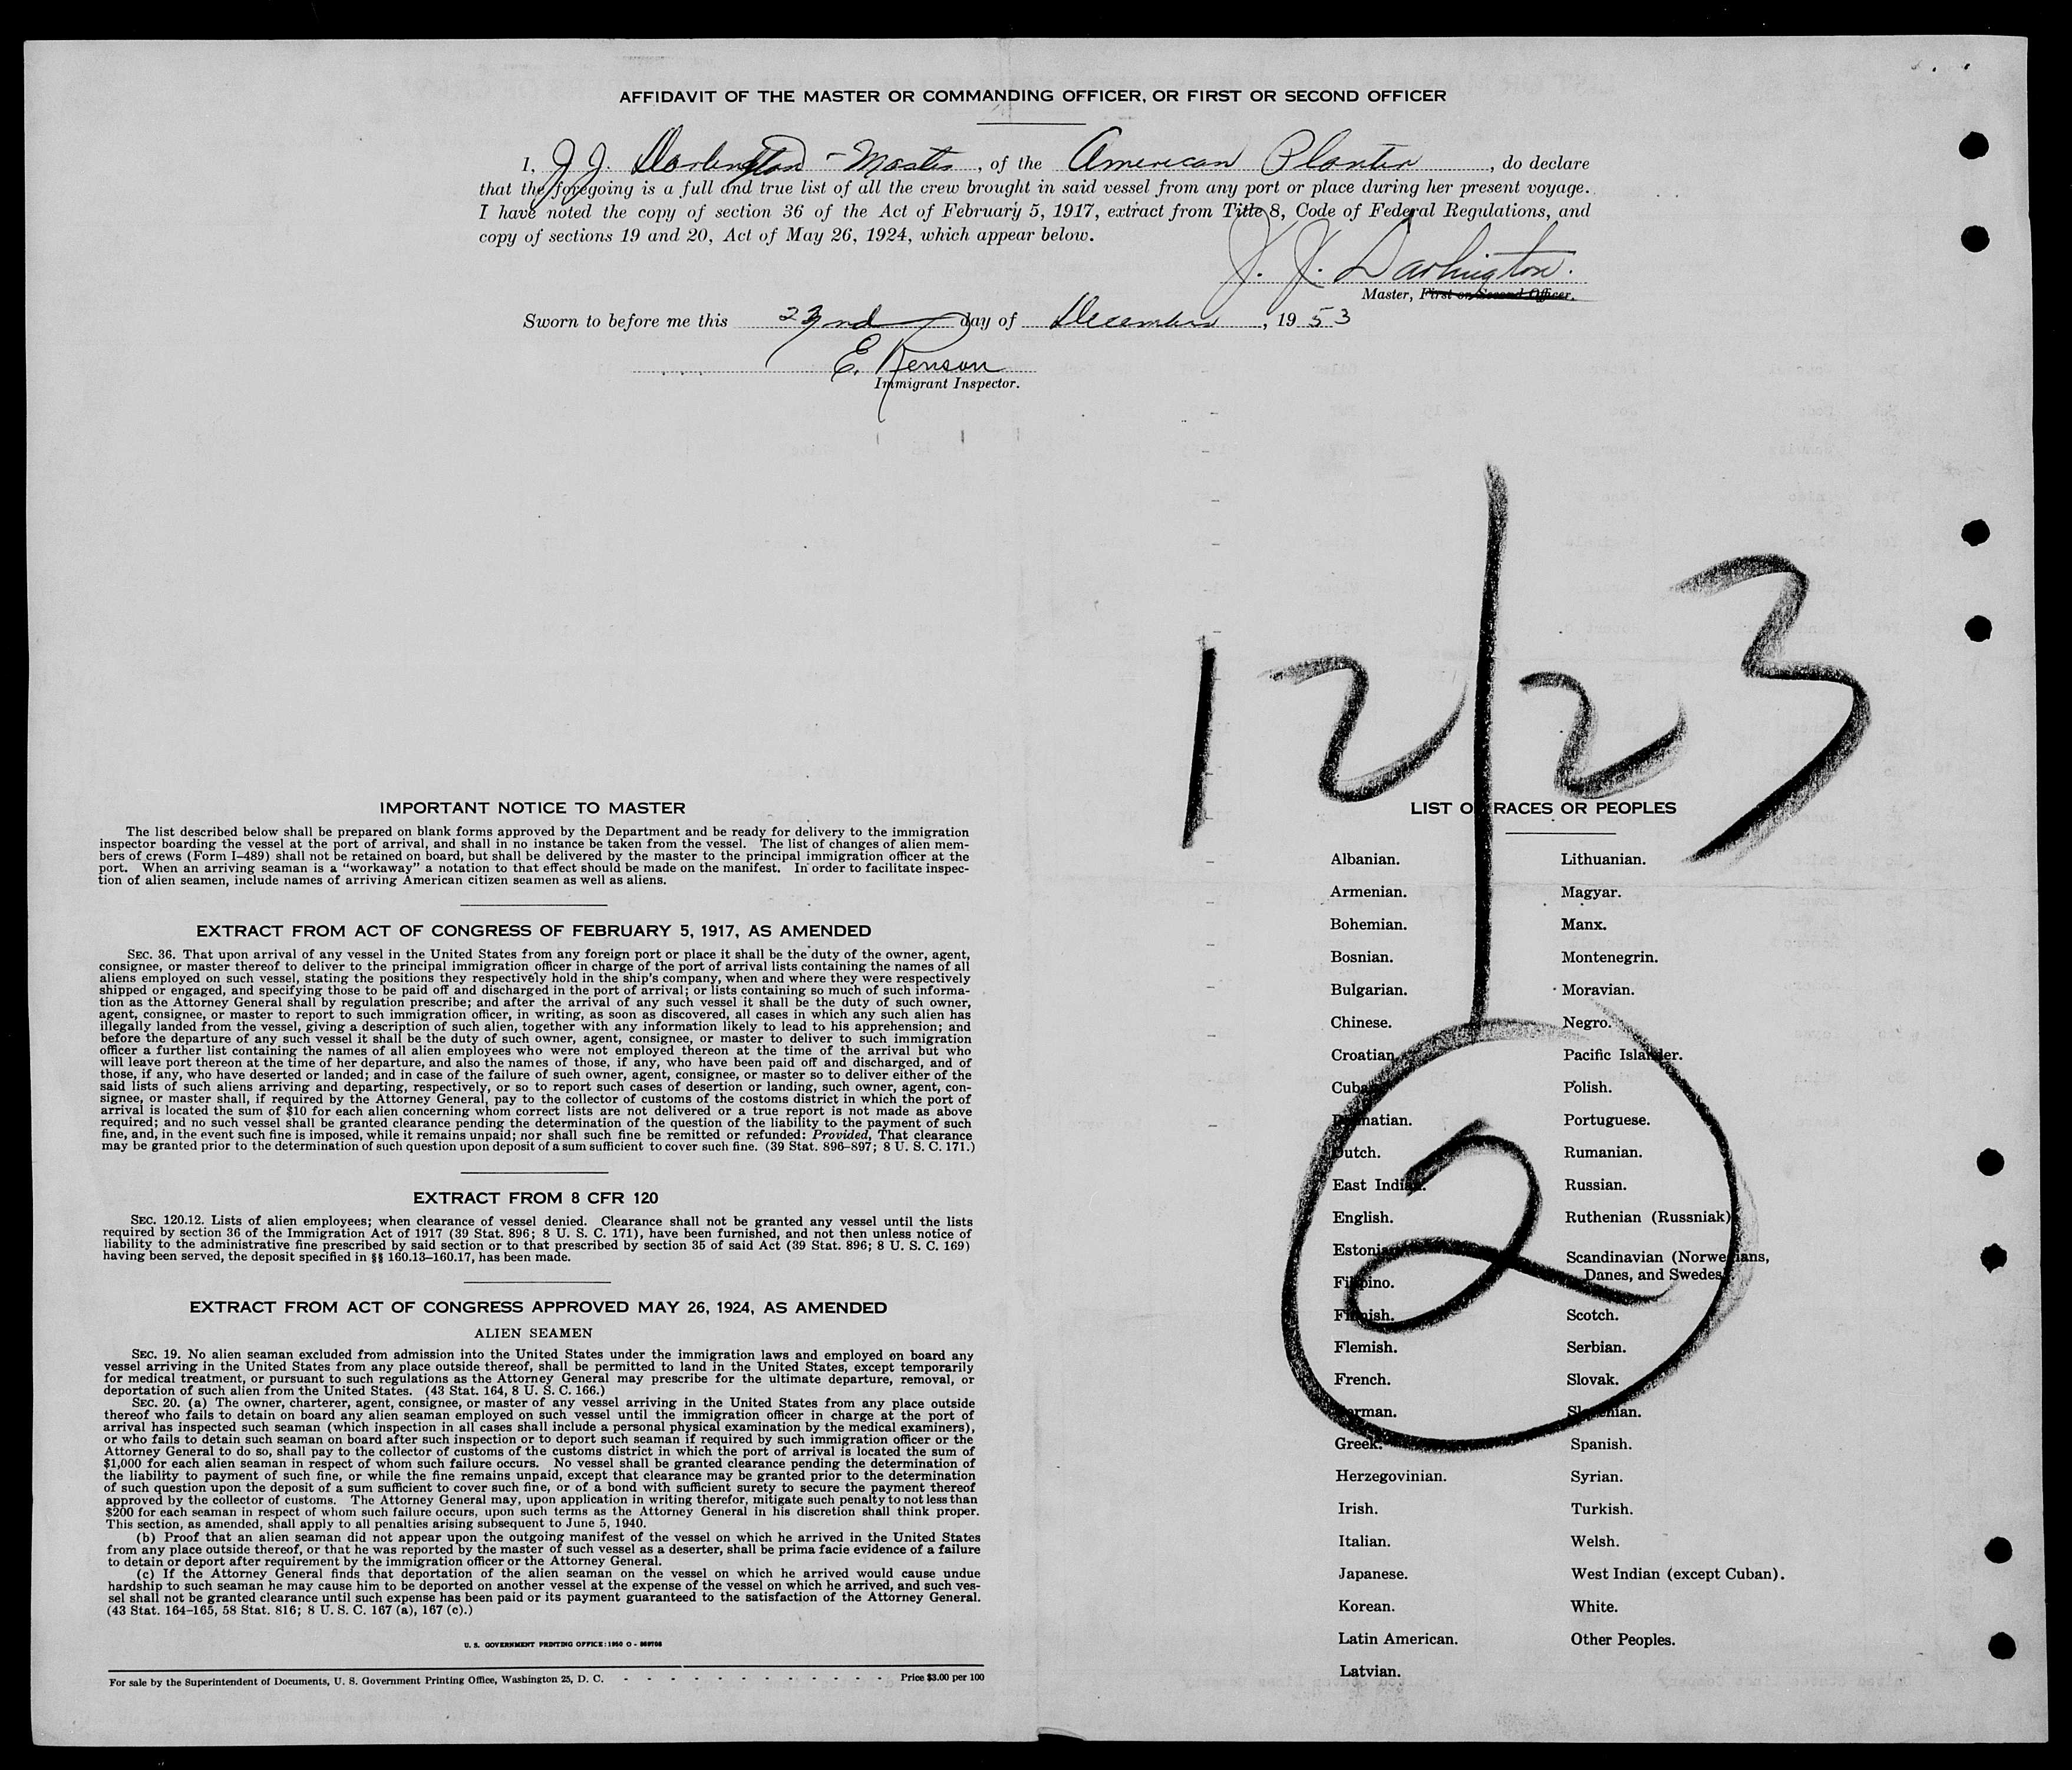 AFFIDAVIT OF THE MASTER OR COMMANDING OFFICER, OR FIRST OR SECOND OFFICER
I, J. J. Darlington - Master, of the American Planter, do declare
that the foregoing is a full and true list of all the crew brought in said vessel from any port or place during her present voyage.
I have noted the copy of section 36 of the Act of February 5, 1917, extract from Title 8, Code of Federal Regulations, and
copy of sections 19 and 20, Act of May 26, 1924, which appear below.
J. J. Darlington.
Master, First or Second Officer.
Sworn to before me this day of December, 1953
E.
Immigrant Inspector.
12/23
2
IMPORTANT NOTICE TO MASTER
The list described below shall be prepared on blank forms approved by the Department and be ready for delivery to the immigration
inspector boarding the vessel at the port of arrival, and shall in no instance be taken from the vessel. The list of changes of alien mem-
bers of crews (Form I-489) shall not be retained on board, but shall be delivered by the master to the principal immigration officer at the
port. When an arriving seaman is a "workaway" a notation to that effect should be made on the manifest. In order to facilitate inspec-
tion of alien seamen, include names of arriving American citizen seamen as well as aliens.
EXTRACT FROM ACT OF CONGRESS OF FEBRUARY 5, 1917, AS AMENDED
SEC. 36. That upon arrival of any vessel in the United States from any foreign port or place it shall be the duty of the owner, agent,
consignee, or master thereof to deliver to the principal immigration officer in charge of the port of arrival lists containing the names of all
aliens employed on such vessel, stating the positions they respectively hold in the ship's company, when and where they were respectively
shipped or engaged, and specifying those to be paid off and discharged in the port of arrival; or lists containing so much of such informa-
tion as the Attorney General shall by regulation prescribe; and after the arrival of any such vessel it shall be the duty of such owner,
agent, consignee, or master to report to such immigration officer, in writing, as soon as discovered, all cases in which any such alien has
illegally landed from the vessel, giving a description of such alien, together with any information likely to lead to his apprehension; and
before the departure of any such vessel it shall be the duty of such owner, agent, consignee, or master to deliver to such immigration
officer a further list containing the names of all alien employees who were not employed thereon at the time of the arrival but who
will leave port thereon at the time of her departure, and also the names of those, if any, who have been paid off and discharged, and of
those, if any, who have deserted or landed; and in case of the failure of such owner, agent, consignee, or master so to deliver either of the
said lists of such aliens arriving and departing, respectively, or so to report such cases of desertion or landing, such owner, agent, con-
signee, or master shall, if required by the Attorney General, pay to the collector of customs of the costoms district in which the port of
arrival is located the sum of $10 for each alien concerning whom correct lists are not delivered or a true report is not made as above
required; and no such vessel shall be granted clearance pending the determination of the question of the liability to the payment of such
fine, and, in the event such fine is imposed, while it remains unpaid; nor shall such fine be remitted or refunded: Provided, That clearance
may be granted prior to the determination of such question upon deposit of a sum sufficient to cover such fine. (39 Stat. 896-897; 8 U. S. C. 171.)
EXTRACT FROM 8 CFR 120
SEC. 120.12. Lists of alien employees; when clearance of vessel denied. Clearance shall not be granted any vessel until the lists
required by section 36 of the Immigration Act of 1917 (39 Stat. 896; 8 U. S. C. 171), have been furnished, and not then unless notice of
liability to the administrative fine prescribed by said section or to that prescribed by section 35 of said Act (39 Stat. 896; 8 U. S. C. 169)
having been served, the deposit specified in §§ 160.13-160.17, has been made.
EXTRACT FROM ACT OF CONGRESS APPROVED MAY 26, 1924, AS AMENDED
ALIEN SEAMEN
SEC. 19. No alien seaman excluded from admission into the United States under the immigration laws and employed on board any
vessel arriving in the United States from any place outside thereof, shall be permitted to land in the United States, except temporarily
for medical treatment, or pursuant to such regulations as the Attorney General may prescribe for the ultimate departure, removal, or
deportation of such alien from the United States. (43 Stat. 164, 8 U. S. C. 166.)
SEC. 20. (a) The owner, charterer, agent, consignee, or master of any vessel arriving in the United States from any place outside
thereof who fails to detain on board any alien seaman employed on such vessel until the immigration officer in charge at the port of
arrival has inspected such seaman (which inspection in all cases shall include a personal physical examination by the medical examiners),
or who fails to detain such seaman on board after such inspection or to deport such seaman if required by such immigration officer or the
Attorney General to do so, shall pay to the collector of customs of the customs district in which the port of arrival is located the sum of
$1,000 for each alien seaman in respect of whom such failure occurs. No vessel shall be granted clearance pending the determination of
the liability to payment of such fine, or while the fine remains unpaid, except that clearance may be granted prior to the determination
of such question upon the deposit of a sum sufficient to cover such fine, or of a bond with sufficient surety to secure the payment thereof
approved by the collector of customs. The Attorney General may, upon application in writing therefor, mitigate such penalty to not less than
$200 for each seaman in respect of whom such failure occurs, upon such terms as the Attorney General in his discretion shall think proper.
This section, as amended, shall apply to all penalties arising subsequent to June 5, 1940.
(b) Proof that an alien seaman did not appear upon the outgoing manifest of the vessel on which he arrived in the United States
from any place outside thereof, or that he was reported by the master of such vessel as a deserter, shall be prima facie evidence of a failure
to detain or deport after requirement by the immigration officer or the Attorney General.
(c) If the Attorney General finds that deportation of the alien seaman on the vessel on which he arrived would cause undue
hardship to such seaman he may cause him to be deported on another vessel at the expense of the vessel on which he arrived, and such ves-
sel shall not be granted clearance until such expense has been paid or its payment guaranteed to the satisfaction of the Attorney General.
(43 Stat. 164-165, 58 Stat. 816; 8 U. S. C. 167 (a), 167 (c).)
U. S. GOVERNMENT PRINTING OFFICE: 1950 O -
For sale by the Superintendent of Documents, U. S. Government Printing Office, Washington 25, D. C. - - - - - - - - - - - - Price $3.00 per 100
LIST OF RACES OR PEOPLES
Albanian.
Armenian.
Bohemian.
Bosnian.
Bulgarian.
Chinese.
Croatian.
Cuban.
Dalmatian.
Dutch.
East Indian.
English.
Estonian.
Filipino.
Finnish.
Flemish.
French.
German.
Greek.
Herzegovinian.
Irish.
Italian.
Japanese.
Korean.
Latin American.
Latvian.
Lithuanian.
Magyar.
Manx.
Montenegrin.
Moravian.
Negro.
Pacific Islander.
Polish.
Portuguese.
Rumanian.
Russian.
Ruthenian (Russniak).
Scandinavian (Norwegians,
Danes, and Swedes).
Scotch.
Serbian.
Slovak.
Slovenian.
Spanish.
Syrian.
Turkish.
Welsh.
West Indian (except Cuban).
White.
Other Peoples.